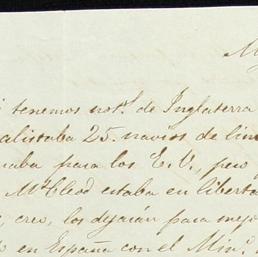 tenemos not.s de Inglaterra
alistaba 25. navios de lin
naba para los E. V., pero
Mc Cleod estaba en liberta
, creo, los dejarán para mejo
en España con el Min.o